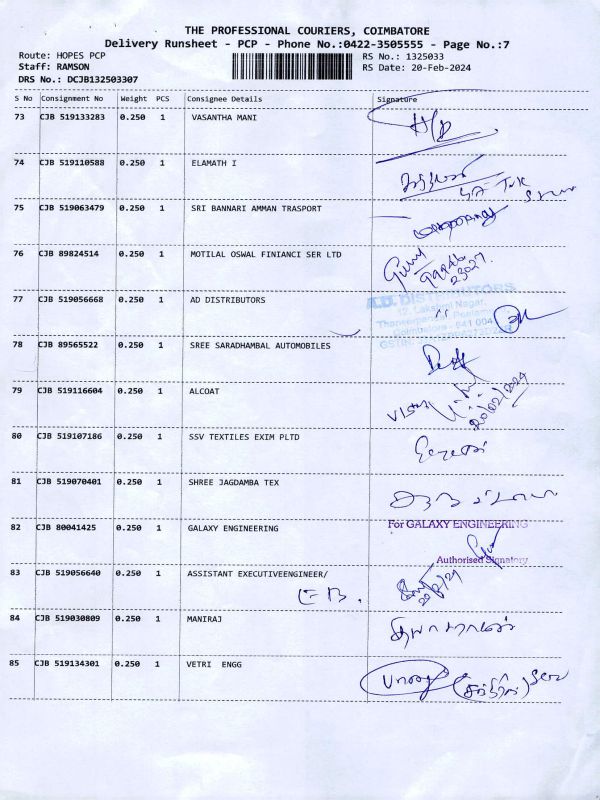 THE PROFESSIONAL COURIERS, COIMBATORE
Delivery Runsheet - PCP - Phone No.:0422-3505555 - Page No.:7
Route: HOPES PCP
RS No.: 1325033
Staff: RAMSON
RS Date: 20-Feb-2024
DRS No.: DCJB132503307
S No Consignment No Weight PCS Consignee Details Signature
73 CJB 519133283 0.250 1 VASANTHA MANI
74 CJB 519110588 0.250 1 ELAMATH I
75 CJB 519063479 0.250 1 SRI BANNARI AMMAN TRASPORT
76 CJB 89824514 0.250 1 MOTILAL OSWAL FINIANCI SER LTD
77 CJB 519056668 0.250 1 AD DISTRIBUTORS
A.D. DISTRIBUTORS
12, Lakshmi Nagar,
78 CJB 89565522 0.250 1 SREE SARADHAMBAL AUTOMOBILES
79 CJB 519116604 0.250 1 ALCOAT
20/02/2024
80 CJB 519107186 0.250 1 SSV TEXTILES EXIM PLTD
81 CJB 519070401 0.250 1 SHREE JAGDAMBA TEX
82 CJB 80041425 0.250 1 GALAXY ENGINEERING
For GALAXY ENGINEERING
Authorised Signatory
83 CJB 519056640 0.250 1 ASSISTANT EXECUTIVEENGINEER/
EB.
84 CJB 519030809 0.250 1 MANIRAJ
85 CJB 519134301 0.250 1 VETRI ENGG